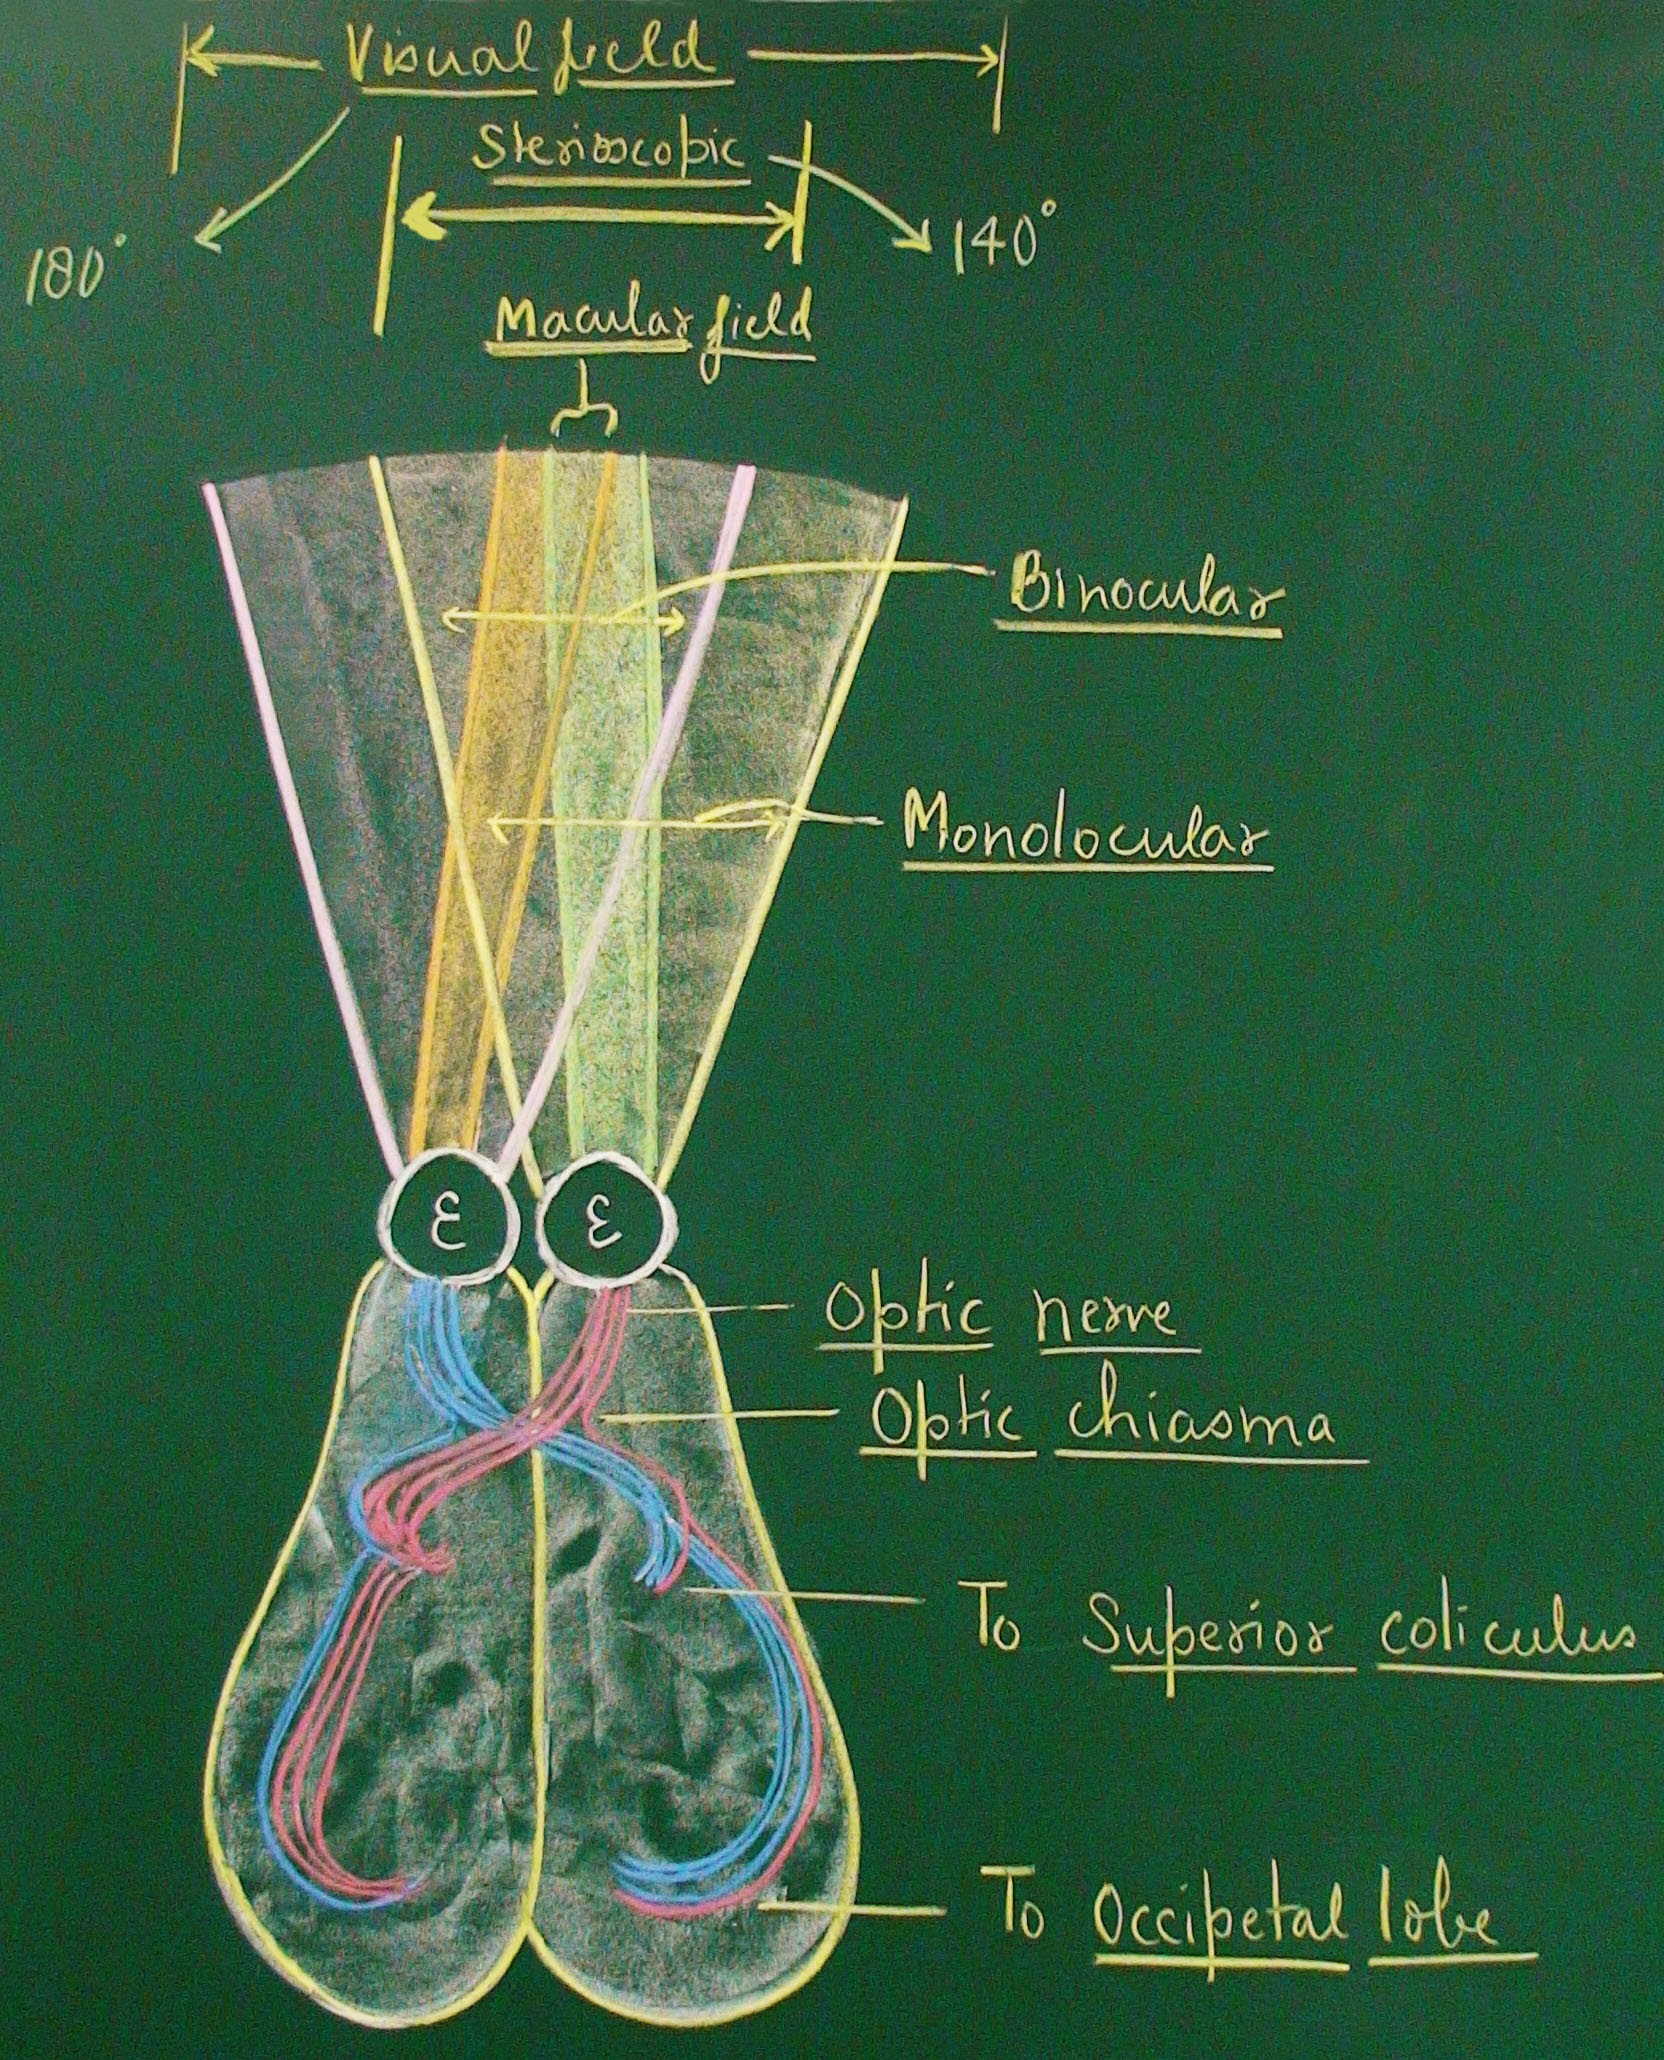 Visual field
Sterioscopic
180°
140°
Macular field
Binocular
Monolocular
ε ε
Optic nerve
Optic chiasma
To Superior coliculus
To Occipetal lobe